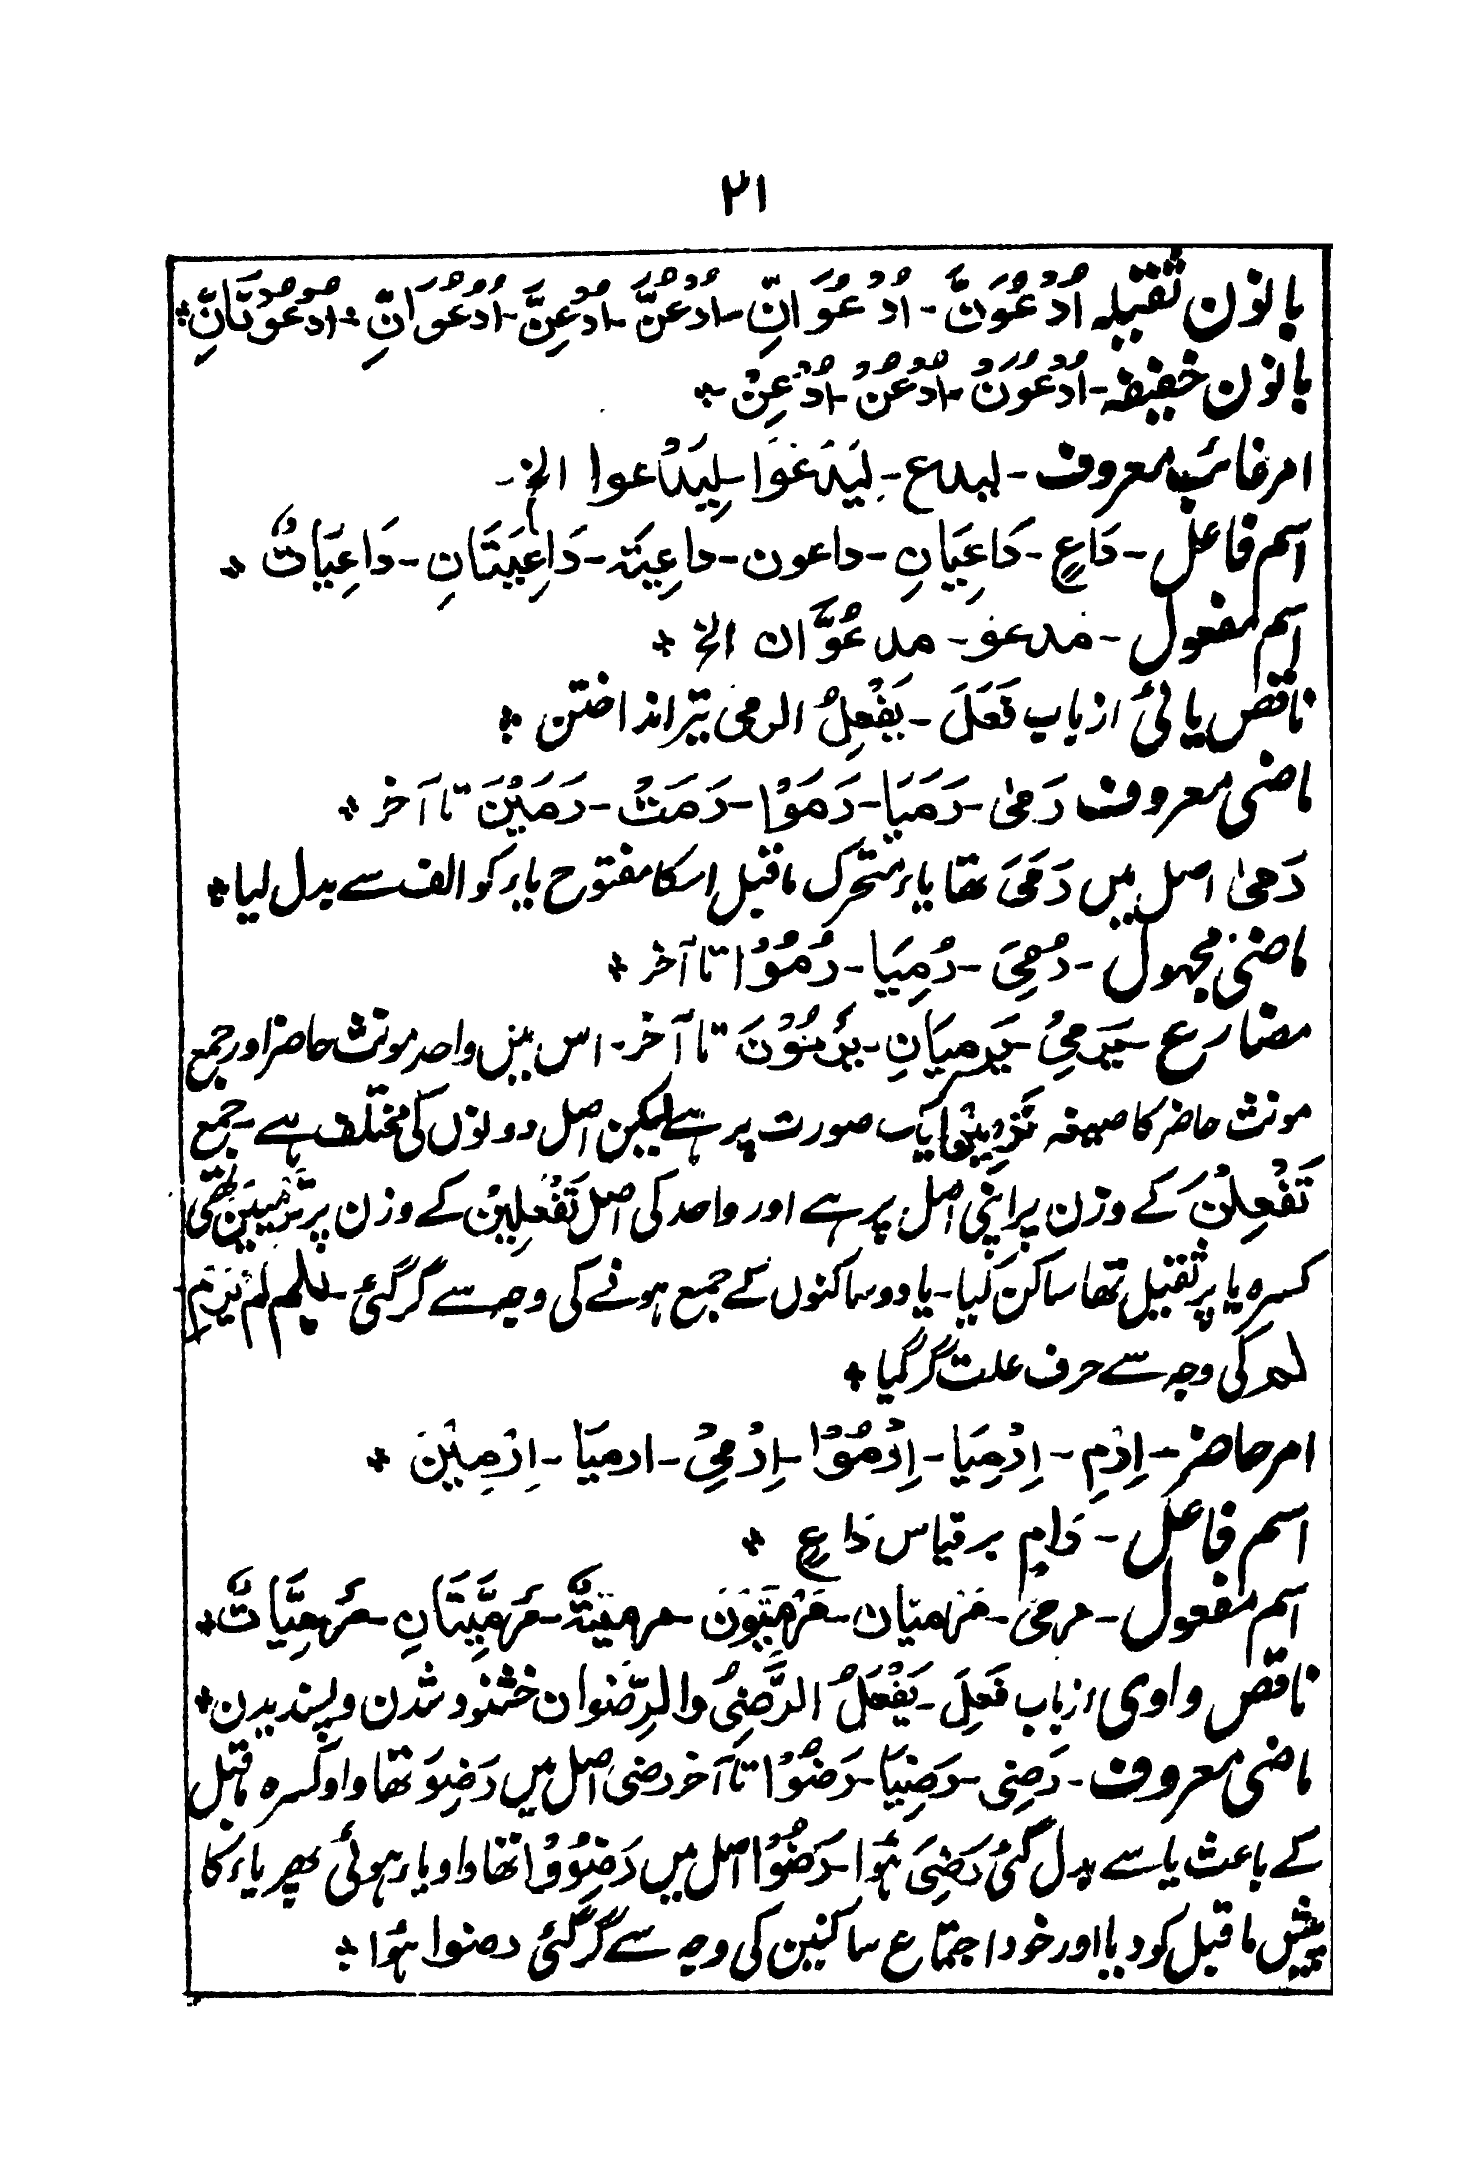 ۲۱
بانون ثقیلہ اُدْعُوَنَّ - اُدْعُوَانِّ - اُدْعُنَّ - اُدْعِنَّ - اُدْعُوَانِّ - اُدْعُوْنَانِّ *
بانون خفیفہ - اُدْعُوَنْ - اُدْعُنْ - اُدْعِنْ *
امر غائب معروف - لیدع - لِیَدْعُوَا - لِیَدْعوا الخ -
اسم فاعل - دَاعٍ - دَاعِیَانِ - داعون - داعِیَۃ - دَاعِیَتَانِ - دَاعِیَاتٌ *
اسم مفعول - مدعو - مدعُوَّان الخ *
ناقص یائی از باب فَعَلَ - یَفْعِلُ الرمی تیر انداختن *
ماضی معروف رَمیٰ - رَمَیَا - رَمَوْا - رَمَتْ - رَمَیْنَ تا آخر *
رَمیٰ اصل میں رَمَیَ تھا یاء متحرک ماقبل اسکا مفتوح یاء کو الف سے بدل لیا *
ماضی مجہول - رُمِیَ - رُمِیَا - رُمُوْا تا آخر *
مضارع - یَرمِیْ - یَرمِیَانِ - یَرْمُوْنَ تا آخر - اس میں واحد مونث حاضر اور جمع
مونث حاضر کا صیغہ ایک صورت پر ہے لیکن اصل دونوں کی مختلف ہے - جمع
تَفْعِلْنَ کے وزن پر اپنی اصل پر ہے اور واحد کی اصل تَفْعِلِیْنَ کے وزن پر تَرْمِیِیْنَ تھی
کسرہ یا پر ثقیل تھا ساکن کیا - یا دو ساکنوں کے جمع ہونے کی وجہ سے گر گئی - لم یَرْمِ
لم کی وجہ سے حرف علت گر گیا *
امر حاضر - اِرْمِ - اِرْمِیَا - اِرْمُوْا - اِرْمِیْ - ارمیَا - اِرْمِیْنَ *
اسم فاعل - رَامٍ بر قیاس دَاعٍ *
اسم مفعول - مرمیٌ - مَرْمیان - مَرْمِیُّوْنَ - مرمیّۃٌ - مَرمِیَّتَانِ - مَرمِیَّاتٌ *
ناقص واوی از باب فَعِلَ - یَفْعَلُ الرَّضِیُ والرِّضْوان خشنود شدن و پسندیدن *
ماضی معروف - رَضِی - رَضِیَا - رَضُوْا تا آخر رضی اصل میں رَضِوَ تھا واو کسرہ ماقبل
کے باعث یا سے بدل گئی رَضِیَ ہُوا - رَضُوْا اصل میں رَضِوُوْا تھا واو یاء ہوئی پھر یاء کا
پیش ماقبل کو دیا اور خود اجتماع ساکنین کی وجہ سے گر گئی رضوا ہُوا *